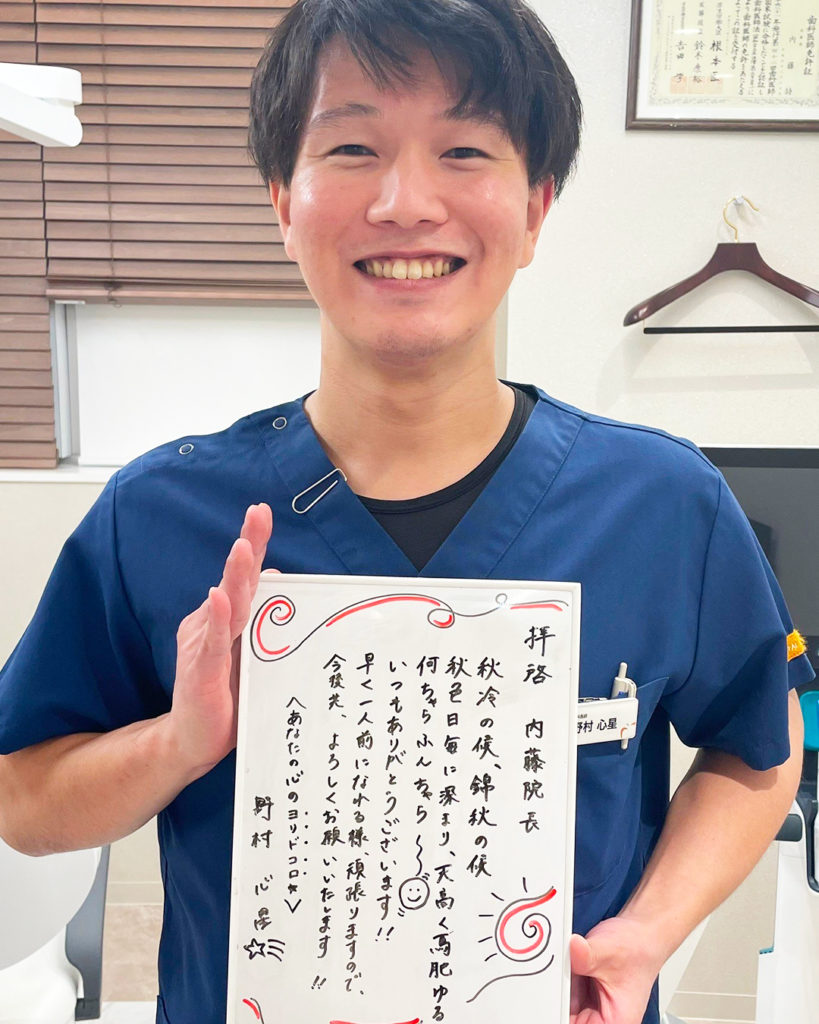 拝啓 内藤院長
秋冷の候、錦秋の候
秋色日毎に深まり、天高く馬肥ゆる
何ちゃらふんちゃら
いつもありがとうございます!!
早く一人前になれる様、頑張りますので、
今後共、よろしくお願いいたします!!
〈あなたの心のヨリドコロ☆〉
野村 心星
野村 心星
歯科医師免許証
内藤
根本匠
鈴木
吉田 学